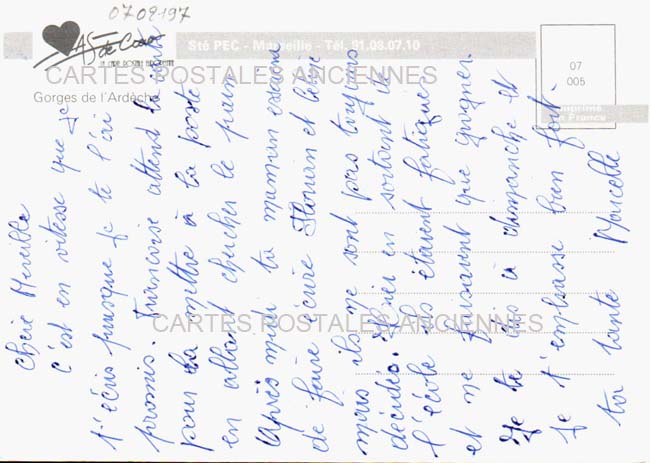 07 09 197
As de Coeur
Sté PEC - Marseille - Tél. 91.08.07.10
CARTES POSTALES ANCIENNES
Gorges de l'Ardèche
07
005
Imprimé
en France
Chère Mireille
C'est en vitesse que je
t'écris puisque je te l'ai
promis. Françoise attend la carte
pour la mettre à la poste
en allant chercher le pain
Après midi ta maman essaiera
de faire écrire Florian et
mais ils ne sont pas toujours
décidés. Hier en sortant de
l'école ils étaient fatigués
et ne faisaient que grogner.
Je te dis à dimanche et
je t'embrasse bien fort.
ta tante Marcelle
CARTES POSTALES ANCIENNES